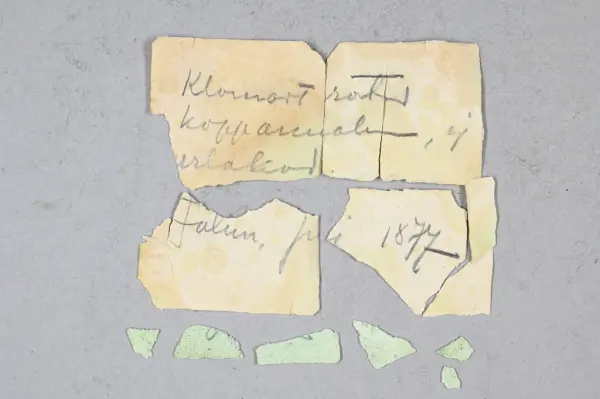 Klorneri rostad
kopparmalm, ej
urlakad.
Falun, juli 1877